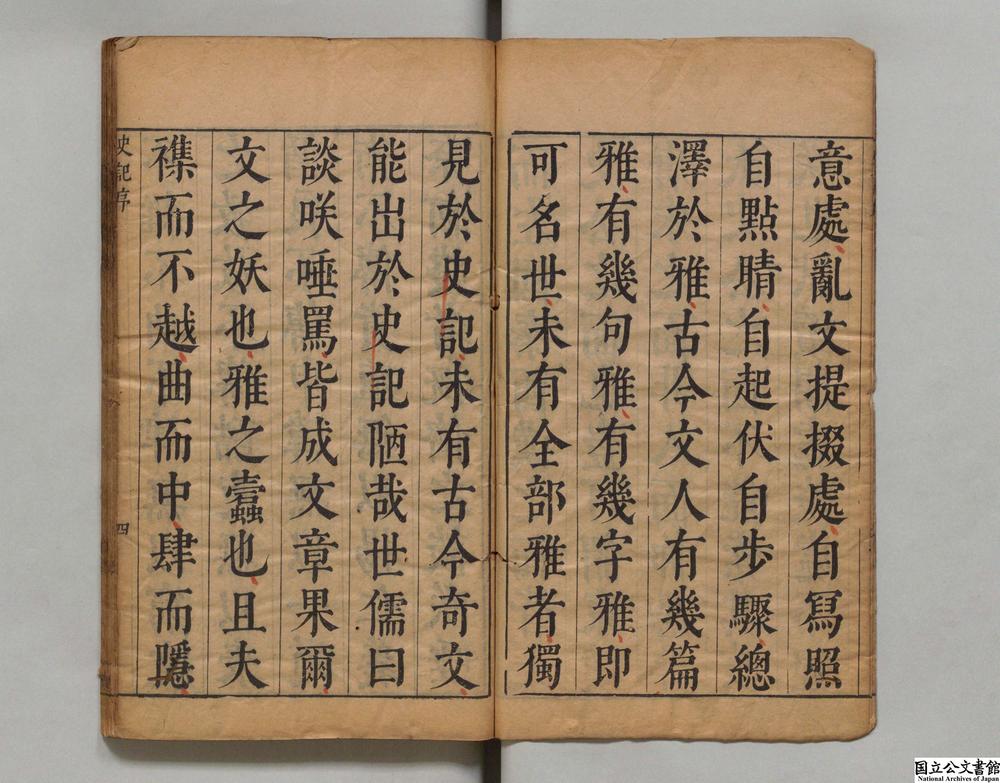 意處亂文提掇處自寫照
自點睛自起伏自步驟總
澤於雅古今文人有幾篇
雅有幾句雅有幾字雅即
可名世未有全部雅者獨
見於史記未有古今奇文
能出於史記陋哉世儒曰
談咲唾罵皆成文章果爾
文之妖也雅之蠹也且夫
襍而不越曲而中肆而隱
史記序
四
国立公文書館
National Archives of Japan